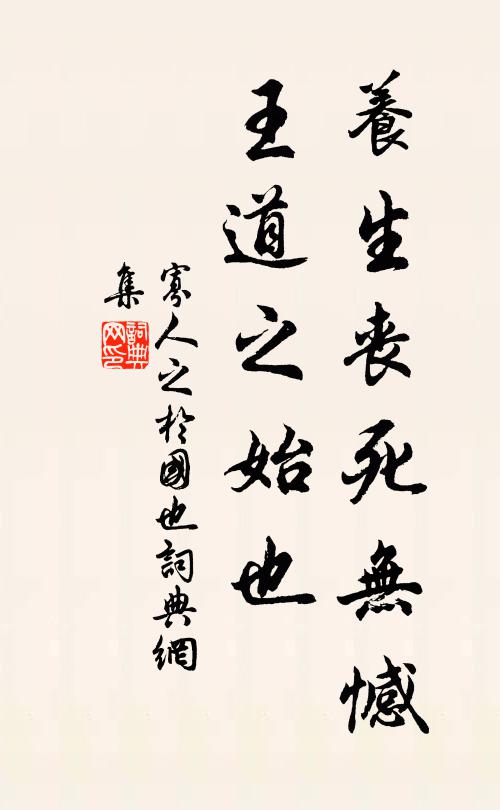 養生喪死無憾
王道之始也
寡人之於國也詞典網
集
詞典
网印